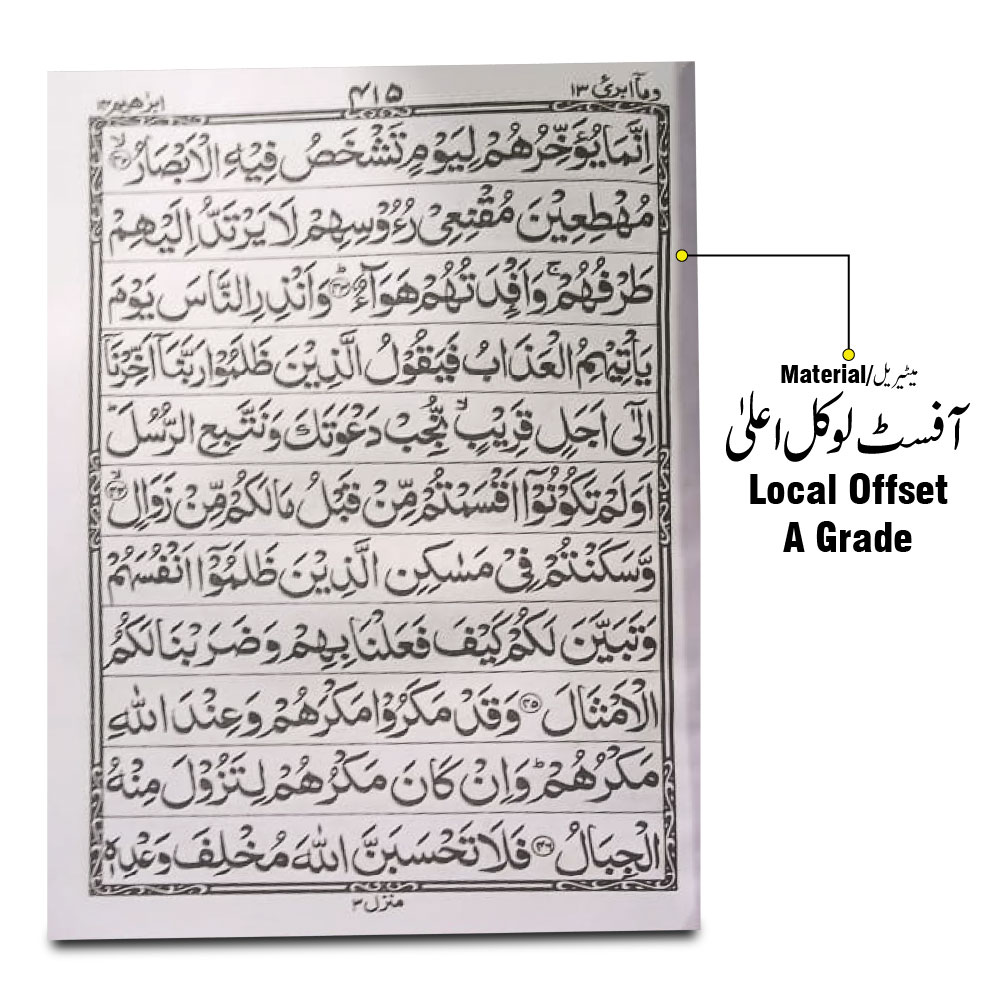 وماۤ ابرئ ۱۳
۴۱۵
ابرٰهيم ۱۴
اِنَّمَا يُؤَخِّرُهُمْ لِيَوْمٍ تَشْخَصُ فِيْهِ الْاَبْصَارُ ۙ‏﴿۴۲﴾
مُهْطِعِيْنَ مُقْنِعِىْ رُءُوْسِهِمْ لَا يَرْتَدُّ اِلَيْهِمْ
طَرْفُهُمْ ۚ وَاَفْـِٕدَتُهُمْ هَوَآءٌ ؕ‏﴿۴۳﴾ وَاَنْذِرِ النَّاسَ يَوْمَ
يَاْتِيْهِمُ الْعَذَابُ فَيَقُوْلُ الَّذِيْنَ ظَلَمُوْا رَبَّنَاۤ اَخِّرْنَاۤ
اِلٰٓى اَجَلٍ قَرِيْبٍ ۙ نُّجِبْ دَعْوَتَكَ وَنَتَّبِعِ الرُّسُلَ ؕ
اَوَلَمْ تَكُوْنُوْۤا اَقْسَمْتُمْ مِّنْ قَبْلُ مَا لَكُمْ مِّنْ زَوَالٍ ۙ‏﴿۴۴﴾
وَّسَكَنْتُمْ فِىْ مَسٰكِنِ الَّذِيْنَ ظَلَمُوْۤا اَنْفُسَهُمْ
وَتَبَيَّنَ لَكُمْ كَيْفَ فَعَلْنَا بِهِمْ وَضَرَبْنَا لَكُمُ
الْاَمْثَالَ‏﴿۴۵﴾ وَقَدْ مَكَرُوْا مَكْرَهُمْ وَعِنْدَ اللّٰهِ
مَكْرُهُمْ ؕ وَاِنْ كَانَ مَكْرُهُمْ لِتَزُوْلَ مِنْهُ
الْجِبَالُ‏﴿۴۶﴾ فَلَا تَحْسَبَنَّ اللّٰهَ مُخْلِفَ وَعْدِهٖ
منزل ۳
Material/میٹیریل
آفسٹ لوکل اعلیٰ
Local Offset
A Grade